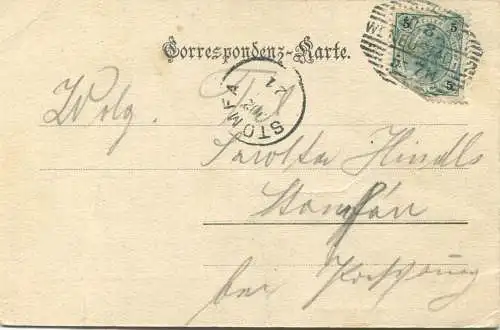 Correspondenz-Karte.
5 5
STOMFA
Wolg. Frl.
Sarolta Hindls
Stomfán
bei Pressburg